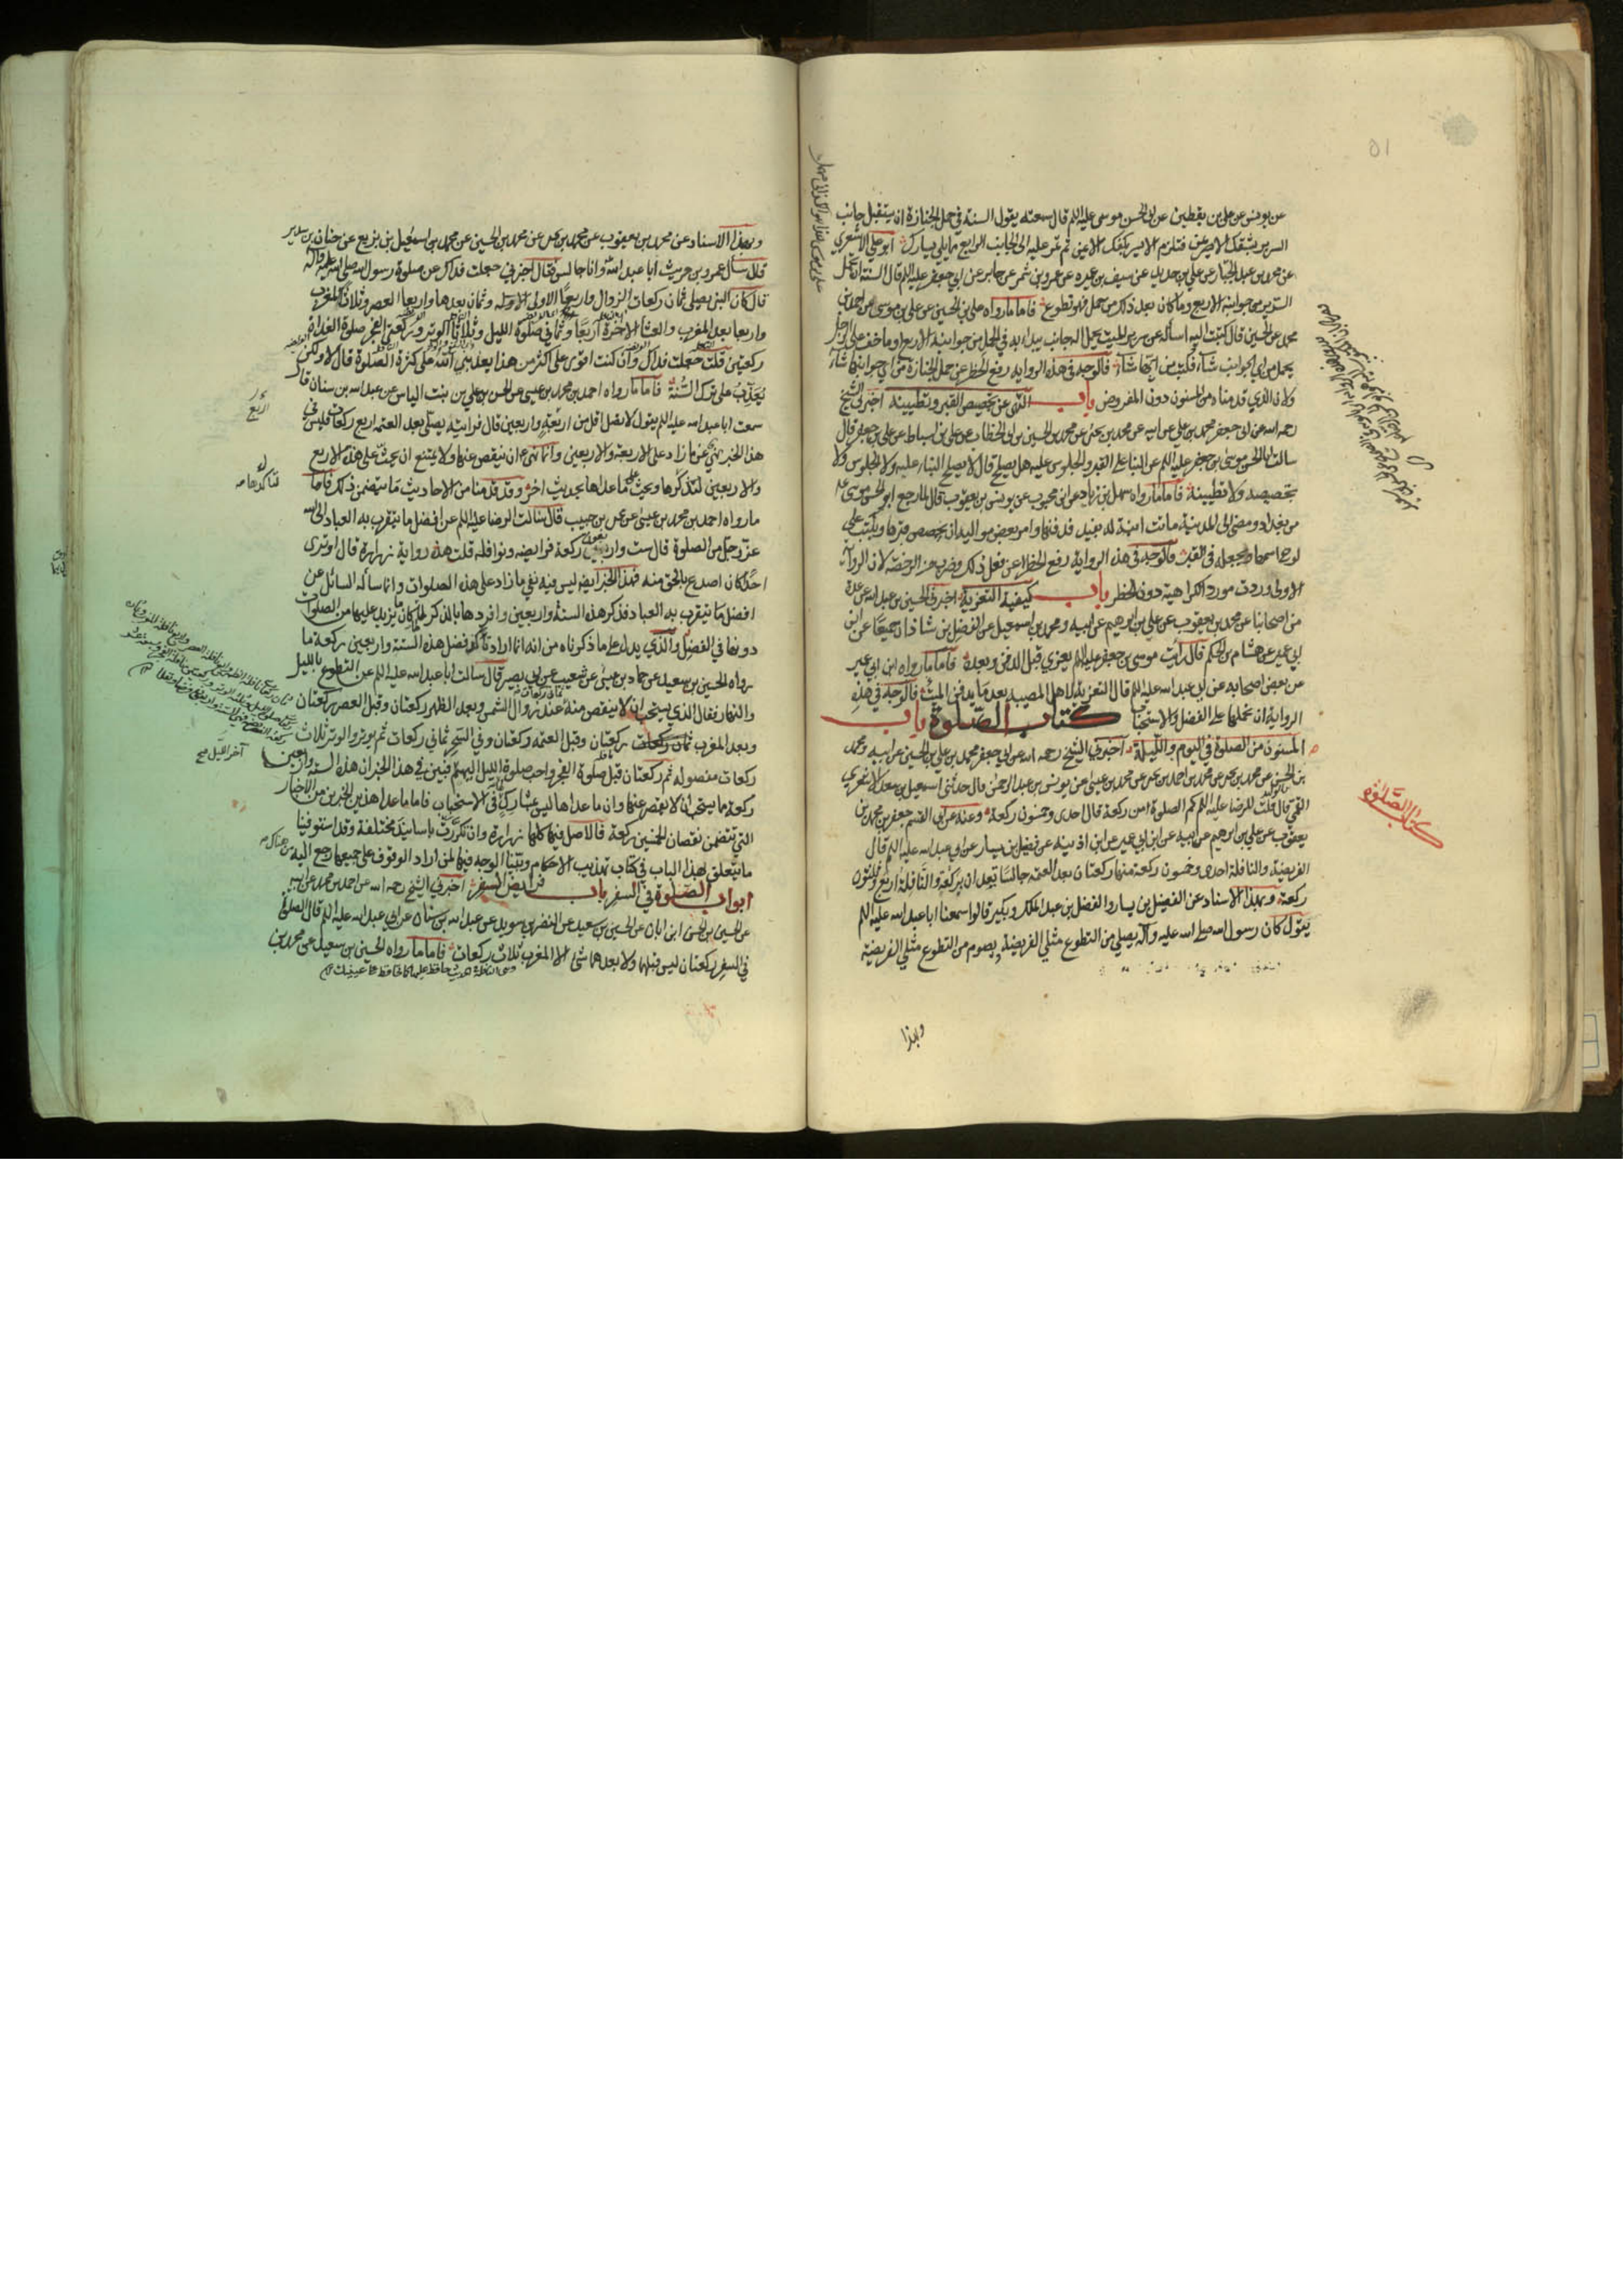 عن يونس عن علي بن يقطين عن ابي الحسن موسى عليه السلم قال سمعته يقول السنة في حمل الجنازة ان يستقبل جانب
السرير بشقك الايمن فتلزم الايسر بكفك الايمن ثم تمر عليه الى الجانب الرابع مما يلي يسارك ابو علي الاشعري
عن محمد بن عبد الجبار عن علي بن حديد عن سيف بن عميره عن عمرو بن شمر عن جابر عن ابي جعفر عليه السلم قال السنة ان تحمل
السرير من جوانبه الاربع وما كان بعد ذلك من حمل فهو تطوع فاما ما رواه علي بن الحسين عن علي بن موسى عن احمد بن
محمد عن الحسين قال كتبت اليه اسأله عن سرير الميت يحمل اله جانب يبدا به في الحمل من جوانبه الاربع او ما خف على الرجل
يحمل من اي الجوانب شآء فكتب من ايها شآء فالوجه في هذه الروايه رفع الحظر عن حمل الجنازة من اي جوانبها شاء
ولان الذي قدمناه من المسنون دون المفروض باب النهى عن تجصيص القبر وتطيينه اخبرني الشيخ
رحمه الله عن ابي جعفر محمد بن علي عن ابيه عن محمد بن يحيى عن محمد بن الحسين بن ابي الخطاب عن علي بن اسباط عن علي بن جعفر قال
سالت ابا الحسن موسى بن جعفر عليه السلم عن البناء على القبر والجلوس عليه هل يصلح قال لا يصلح البناء عليه ولا الجلوس ولا
تجصيصه ولا تطيينه فاما ما رواه سهل بن زياد عن ابن محبوب عن يونس بن يعقوب قال لما رجع ابو الحسن موسى عليه
من بغداد ومضى الى المدينة ماتت ابنة له بفيد فدفنها وامر بعض مواليه ان يجصص قبرها ويكتب على
لوح اسمها ويجعله في القبر فالوجه في هذه الرواية رفع الحظر عن فعل ذلك وضرب من الرخصة لان الروايات
الاولى وردت مورد الكراهية دون الحظر باب كيفية التعزية اخبرني الحسين بن عبد الله عن عدة
من اصحابنا عن محمد بن يعقوب عن علي بن ابرهيم عن ابيه ومحمد بن اسمعيل عن الفضل بن شاذان جميعا عن ابن
ابي عمير عن هشام بن الحكم قال رايت موسى بن جعفر عليه السلم يعزي قبل الدفن وبعده فاما ما رواه ابن ابي عمير
عن بعض اصحابه عن ابي عبد الله عليه السلم قال التعزية لاهل المصيبة بعد ما يدفن الميت فالوجه في هذه
الرواية ان نحملها على الفضل والاستحباب كتاب الصلوة باب
المسنون من الصلوة في اليوم والليلة اخبرني الشيخ رحمه الله عن ابي جعفر محمد بن علي بن الحسين عن ابيه ومحمد
بن الحسن عن محمد بن يحيى عن محمد بن احمد بن يحيى عن محمد بن عيسى عن يونس بن عبد الرحمن قال حدثني اسمعيل بن سعد الاشعري
القمي قال قلت للرضا عليه السلم كم الصلوة من ركعة قال احدى وخمسون ركعة وعنه عن ابي القسم جعفر بن محمد بن
يعقوب عن علي بن ابرهيم عن ابيه عن ابن ابي عمير عن ابن اذينه عن فضيل بن يسار عن ابي عبد الله عليه السلم قال
الفريضة والنافلة احدى وخمسون ركعة منها ركعتان بعد العتمه جالسا تعدان بركعة والنافلة اربع وثلثون
ركعة وبهذا الاسناد عن الفضيل بن يسار والفضل بن عبد الملك وبكير قالوا سمعنا ابا عبد الله عليه السلم
يقول كان رسول الله صلى الله عليه وآله يصلي من التطوع مثلي الفريضة ويصوم من التطوع مثلي الفريضة
وبهذا
كتاب الصلوة
وبهذا الاسناد عن محمد بن يعقوب عن محمد بن يحيى عن محمد بن الحسين عن محمد بن اسمعيل بن بزيع عن حنان بن سدير
قال سأل عمرو بن حريث ابا عبد الله وانا جالس فقال اخبرني جعلت فداك عن صلوة رسول الله صلى الله عليه وآله
قال كان النبي يصلي ثمان ركعات الزوال واربعا الاولى وثمان بعدها واربعا العصر وثلاثا المغرب
واربعا بعد المغرب والعشا الاخرة اربعا وثماني صلوة الليل وثلاثا الوتر وركعتي الفجر وصلوة الغداة
ركعتين قلت جعلت فداك وان كنت اقوى على اكثر من هذا يعذبني الله على كثرة الصلوة قال لا ولكن
يعذب على ترك السنة فاما ما رواه احمد بن محمد بن عيسى عن الحسن بن علي بن بنت الياس عن عبد الله بن سنان قال
سمعت ابا عبد الله عليه السلم يقول لا تصل اقل من اربعة واربعين قال فرأيته يصلي بعد العتمه اربع ركعات فليس في
هذا الخبر نهى عن ما زاد على الاربعة والاربعين وانما نهى عن ان ينقص عنها ولا يمتنع ان يحث على هذه الاربع
والاربعين لتأكدها ويحث على ما عداها بحديث اخر وقد قدمنا من الاحاديث ما يتضمن ذلك فاما
ما رواه احمد بن محمد بن عيسى عن يحيى بن حبيب قال سالت الرضا عليه السلم عن افضل ما يتقرب به العباد الى الله
عز وجل من الصلوة قال ست واربعون ركعة فرايضه ونوافله قلت هذه رواية زرارة قال اوترى
احدا كان اصدع بالحق منه فهذا الخبر ايضا ليس فيه نفي ما زاد على هذه الصلوات وانما سأله السائل عن
افضل ما يتقرب به العباد فذكر هذه الستة واربعين وافردها بالذكر لما كان ما يزيد عليها من الصلوات
دونها في الفضل والذي يدل على ما ذكرناه من انه انما اراد تأكد فضل هذه الستة واربعين ركعة ما
رواه الحسين بن سعيد عن حماد بن عيسى عن شعيب عن ابي بصير قال سالت ابا عبد الله عليه السلم عن التطوع بالليل
والنهار فقال الذي يستحب ان لا ينقص منه عند زوال الشمس وبعد الظهر ركعتان وقبل العصر ركعتان
وبعد المغرب ركعتان وقبل العتمه ركعتان وفي السحر ثماني ركعات ثم يوتر والوتر ثلاث
ركعات مفصوله ثم ركعتان قبل صلوة الفجر واحب صلوة الليل اليهم فبين في هذا الخبر ان هذه الستة واربعين
ركعة ما يستحب ان لا يقصر عنها وان ما عداها ليس بمشارك لها في الاستحباب فاما ما عدا هذين الخبرين من الاخبار
التي تتضمن نقصان الخمسين ركعة فالاصل فيها كلها زرارة وان تكررت باسانيد مختلفة وقد استوفينا
ما يتعلق بهذا الباب في كتاب تهذيب الاحكام وبينا الوجه فيها فمن اراد الوقوف على جميعها رجع اليه من هناك
ابواب الصلوة في السفر باب فرايض السفر اخبرني الشيخ رحمه الله عن احمد بن محمد عن ابيه
عن الحسين بن الحسن بن ابان عن الحسين بن سعيد عن النضر بن سويد عن عبد الله بن سنان عن ابي عبد الله عليه السلم قال الصلوة
في السفر ركعتان ليس قبلها ولا بعدهما شئ الا المغرب ثلاث ركعات فاما ما رواه الحسين بن سعيد عن محمد بن
آخر الليل صح